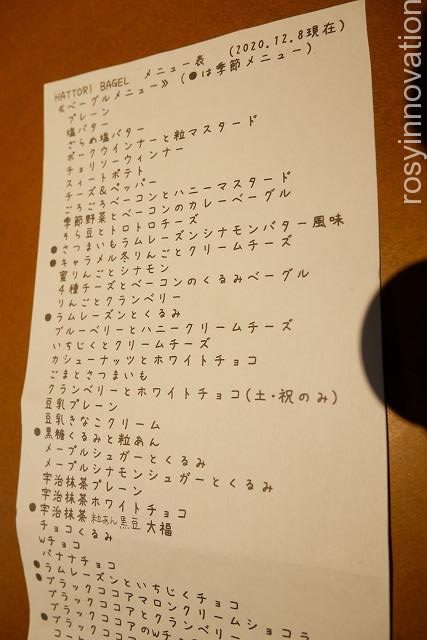 HATTORI BAGEL メニュー表 (2020.12.8現在)
《ベーグルメニュー》 (●は季節メニュー)
プレーン
塩バター
ざらめ塩バター
ポークウインナーと粒マスタード
チョリソーウィンナー
スィートポテト
チーズ&ペッパー
ごろごろベーコンとハニーマスタード
季節野菜とベーコンのカレーベーグル
そら豆とトロトロチーズ
●さつまいもラムレーズンシナモンバター風味
●キャラメル冬りんごとクリームチーズ
蜜りんごとシナモン
4種チーズとベーコンのくるみベーグル
りんごとクランベリー
●ラムレーズンとくるみ
ブルーベリーとハニークリームチーズ
いちじくとクリームチーズ
カシューナッツとホワイトチョコ
ごまとさつまいも
クランベリーとホワイトチョコ(土・祝のみ)
豆乳プレーン
豆乳きなこクリーム
●黒糖くるみと粒あん
メープルシュガーとくるみ
メープルシナモンシュガーとくるみ
宇治抹茶プレーン
宇治抹茶ホワイトチョコ
●宇治抹茶 粒あん黒豆 大福
チョコくるみ
Wチョコ
バナナチョコ
●ラムレーズンといちじくチョコ
●ブラックココアマロンクリームショコラ
ブラックココアとクランベリー
●ブラックココアのWチョ
rosyinnovation